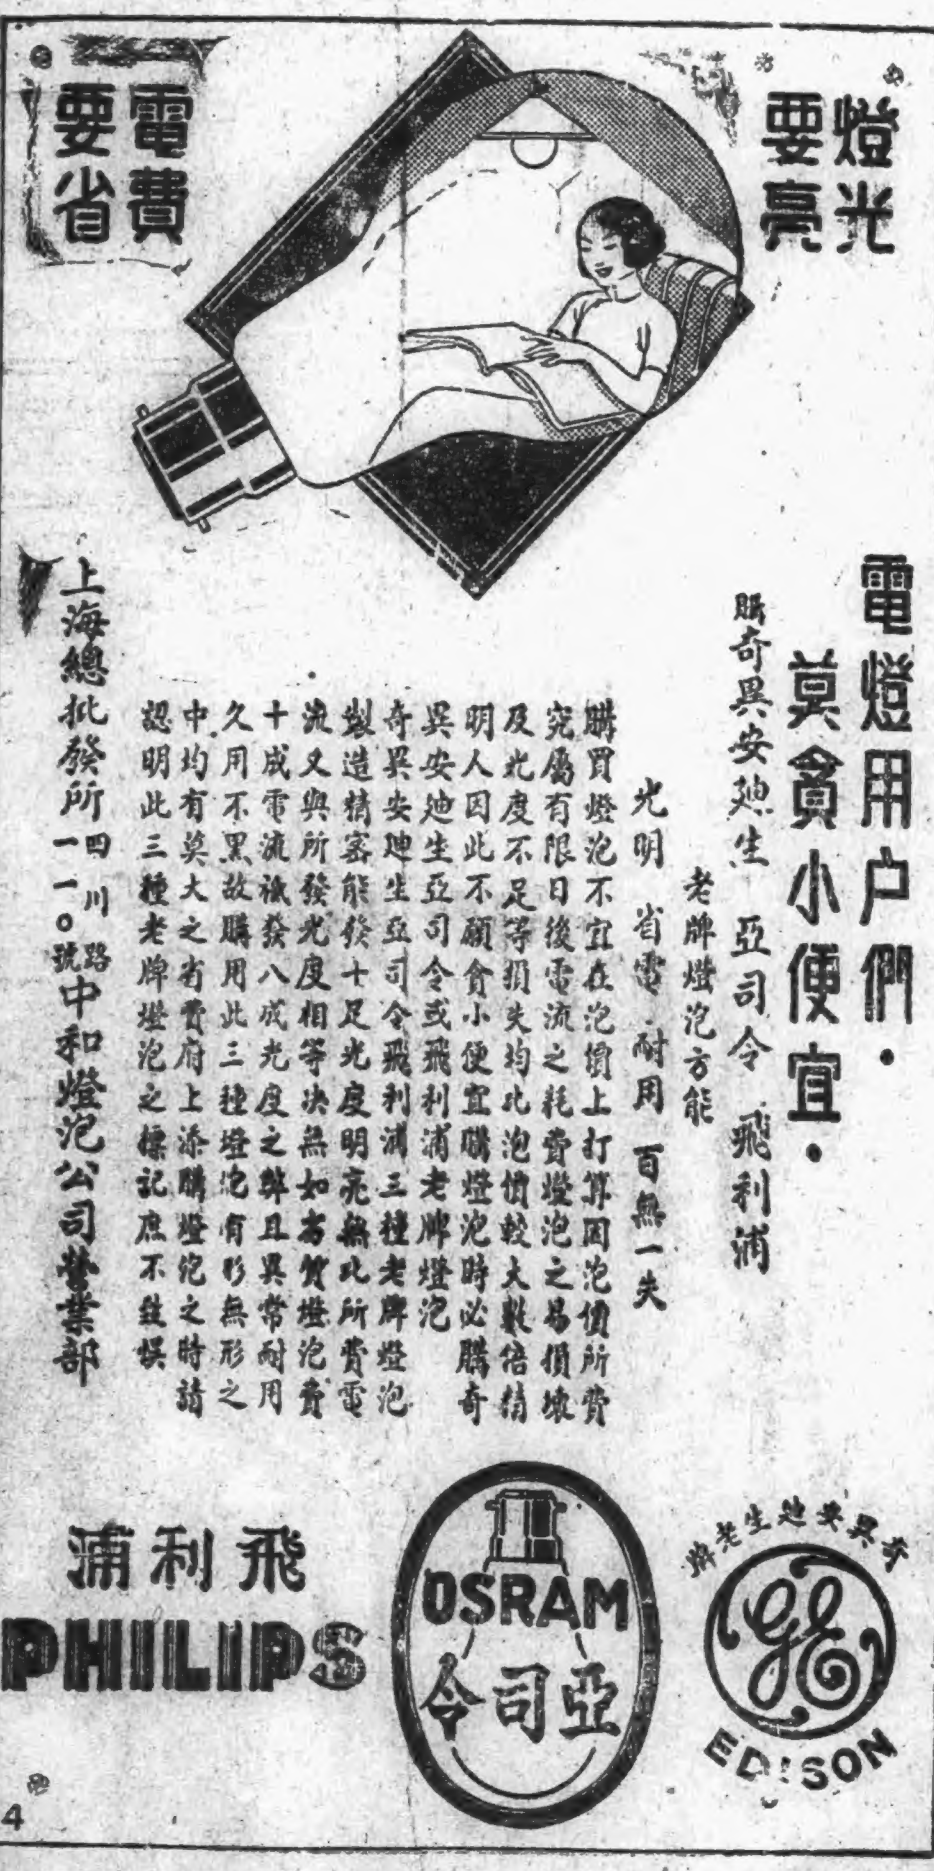 燈光
要亮
電費
要省
電燈用户們．
莫貪小便宜．
奇異安廸生　亞司令　飛利浦
老牌燈泡方能
光明　省電　耐用　百無一失
購買燈泡不宜在泡價上打算因泡價所費
究屬有限日後電流之耗費燈泡之易損壞
及光度不足等損失均比泡價較大數倍精
明人因此不願貪小便宜購燈泡時必購奇
異安廸生亞司令或飛利浦老牌燈泡
奇異安廸生亞司令飛利浦三種老牌燈泡
製造精密能發十足光度明亮無比所費電
流又與所發光度相等决無如劣質燈泡費
十成電流祗發八成光度之弊且異常耐用
久用不黑故購用此三種燈泡有形無形之
中均有莫大之省費府上添購燈泡之時請
認明此三種老牌燈泡之標記庶不致悮
上海總批發所四川路一一〇號中和燈泡公司營業部
奇異安廸生老牌
GE
EDISON
OSRAM
亞司令
飛利浦
PHILIPS
4